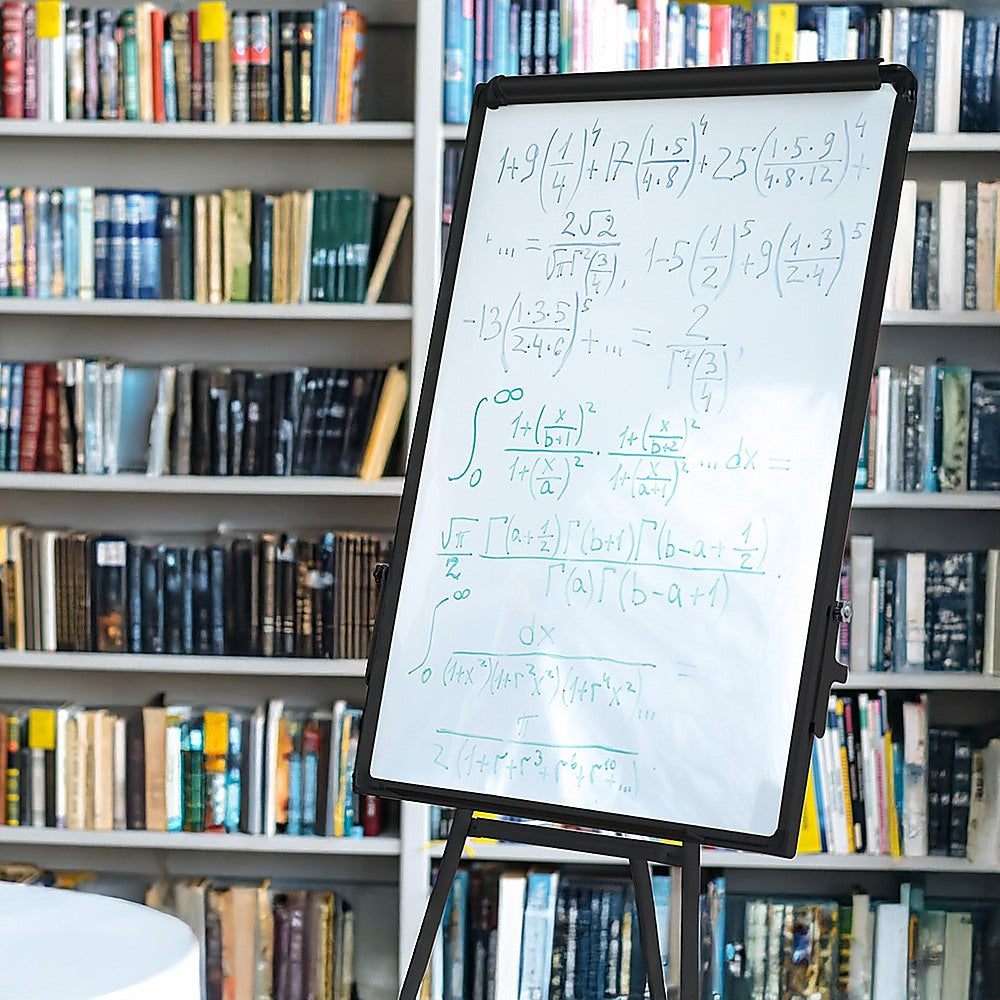 1+9(1/4)^4+17(1·5/4·8)^4+25(1·5·9/4·8·12)^4+
+... = 2√2/√π Γ²(3/4), 1-5(1/2)^5+9(1·3/2·4)^5
-13(1·3·5/2·4·6)^5+... = 2/Γ⁴(3/4),
∫₀^∞ 1+(x/b+1)²/1+(x/a)² · 1+(x/b+2)²/1+(x/a+1)² ... dx =
√π/2 Γ(a+1/2)Γ(b+1)Γ(b-a+1/2)/Γ(a)Γ(b-a+1).
∫₀^∞ dx/(1+x²)(1+r²x²)(1+r⁴x²)... =
π/2(1+r+r³+r⁶+r¹⁰+...).